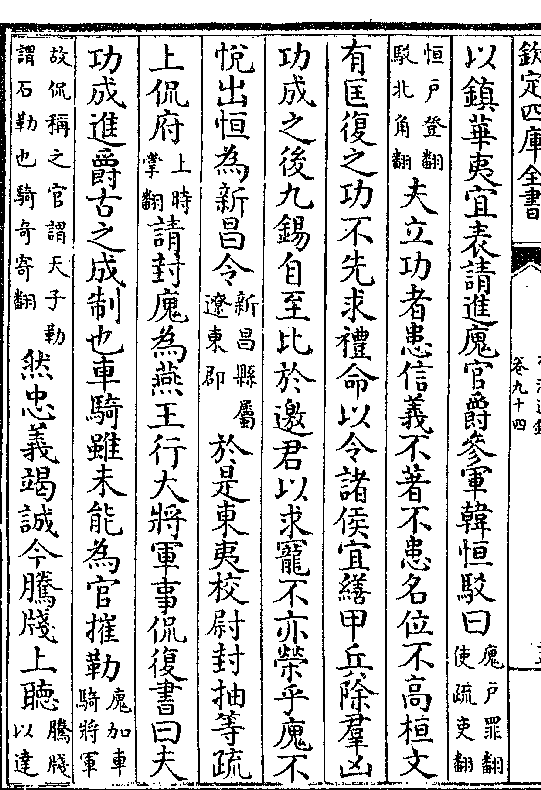 欽定四庫全書
卷九十四
以鎮華夷宜表請進廆官爵參軍韓恒駁曰廆戶罪翻使疏吏翻
恒戶登翻駁北角翻夫立功者患信義不著不患名位不高桓文
有匡復之功不先求禮命以令諸侯宜繕甲兵除羣凶
功成之後九錫自至比於邀君以求寵不亦榮乎廆不
悅出恒為新昌令新昌縣屬遼東郡於是東夷校尉封抽等疏
上侃府上時掌翻請封廆為燕王行大將軍事侃復書曰夫
功成進爵古之成制也車騎雖未能為官摧勒廆加車騎將軍
故侃稱之官謂天子勒謂石勒也騎奇寄翻然忠義竭誠今騰牋上聽騰牋以達